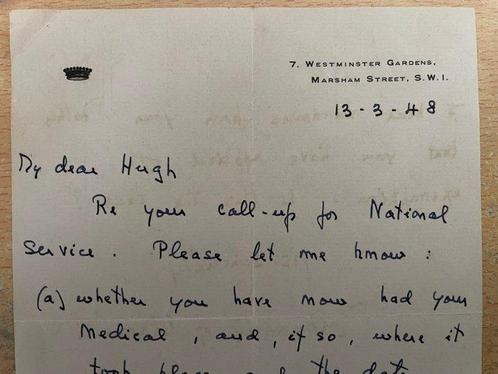 7. WESTMINSTER GARDENS,
MARSHAM STREET, S.W.1.
13-3-48
My dear Hugh
Re your call-up for National
Service. Please let me know :
(a) whether you have now had your
medical, and, if so, where it
took place and the date